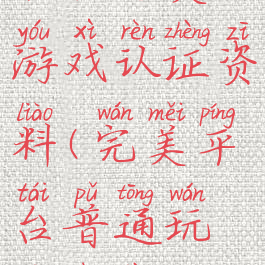 yóu xì rèn zhèng zī
游戏认证资
liào wán měi píng
料(完美平
tái pǔ tōng wán
台普通玩